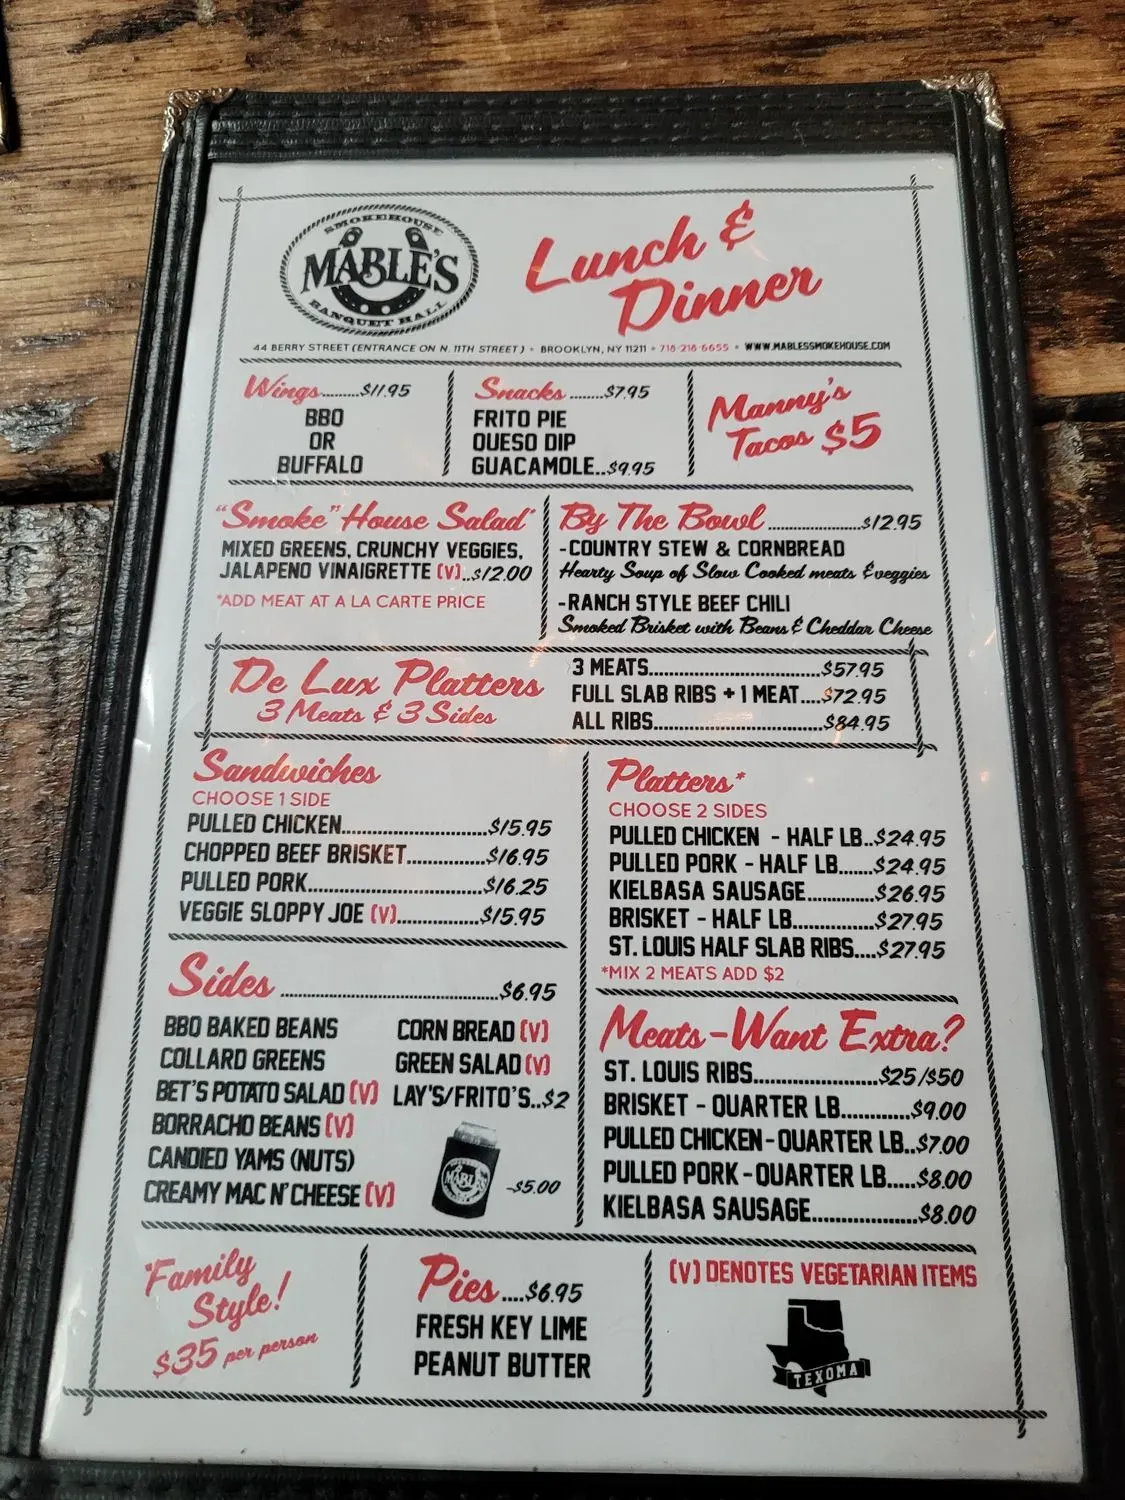 SMOKEHOUSE
MABLE'S
BANQUET HALL
Lunch &
Dinner
44 BERRY STREET (ENTRANCE ON N. 11TH STREET) • BROOKLYN, NY 11211 • 718-218-6655 • WWW.MABLESSMOKEHOUSE.COM
Wings.........$11.95
BBQ
OR
BUFFALO
Snacks ........$7.95
FRITO PIE
QUESO DIP
GUACAMOLE..$9.95
Manny's
Tacos $5
"Smoke" House Salad*
MIXED GREENS, CRUNCHY VEGGIES,
JALAPENO VINAIGRETTE (V)..$12.00
*ADD MEAT AT A LA CARTE PRICE
By The Bowl......................$12.95
-COUNTRY STEW & CORNBREAD
Hearty Soup of Slow Cooked meats & veggies
-RANCH STYLE BEEF CHILI
Smoked Brisket with Beans & Cheddar Cheese
De Lux Platters
3 Meats & 3 Sides
3 MEATS....................................$57.95
FULL SLAB RIBS + 1 MEAT....$72.95
ALL RIBS...................................$84.95
Sandwiches
CHOOSE 1 SIDE
PULLED CHICKEN.............................$15.95
CHOPPED BEEF BRISKET...............$16.95
PULLED PORK...................................$16.25
VEGGIE SLOPPY JOE (V)................$15.95
Platters*
CHOOSE 2 SIDES
PULLED CHICKEN - HALF LB..$24.95
PULLED PORK - HALF LB.......$24.95
KIELBASA SAUSAGE..............$26.95
BRISKET - HALF LB.................$27.95
ST. LOUIS HALF SLAB RIBS....$27.95
*MIX 2 MEATS ADD $2
Sides ............................................$6.95
BBQ BAKED BEANS
COLLARD GREENS
BET'S POTATO SALAD (V)
BORRACHO BEANS (V)
CANDIED YAMS (NUTS)
CREAMY MAC N' CHEESE (V)
CORN BREAD (V)
GREEN SALAD (V)
LAY'S/FRITO'S..$2
MABLE'S
-$5.00
Meats-Want Extra?
ST. LOUIS RIBS.........................$25/$50
BRISKET - QUARTER LB..............$9.00
PULLED CHICKEN-QUARTER LB..$7.00
PULLED PORK-QUARTER LB.....$8.00
KIELBASA SAUSAGE.....................$8.00
*Family
Style!
$35 per person
Pies....$6.95
FRESH KEY LIME
PEANUT BUTTER
(V) DENOTES VEGETARIAN ITEMS
TEXOMA